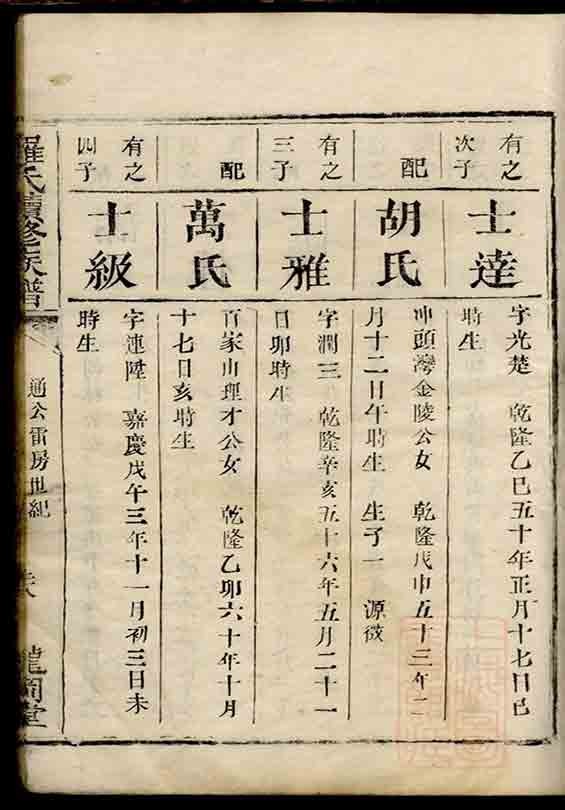 有之
次子
士達
字光楚 乾隆乙巳五十年正月十七日巳
時生
配
胡氏
沖頭灣金陵公女 乾隆戊申五十三年二
月十二日午時生 生子一 源微
有之
三子
士雅
字潤三 乾隆辛亥五十六年五月二十一
日卯時生
配
萬氏
百家山理才公女 乾隆乙卯六十年十月
十七日亥時生
有之
四子
士級
字連陞 嘉慶戊午三年十一月初三日未
時生
羅氏續修族譜
通公雷房世紀
龍岡堂